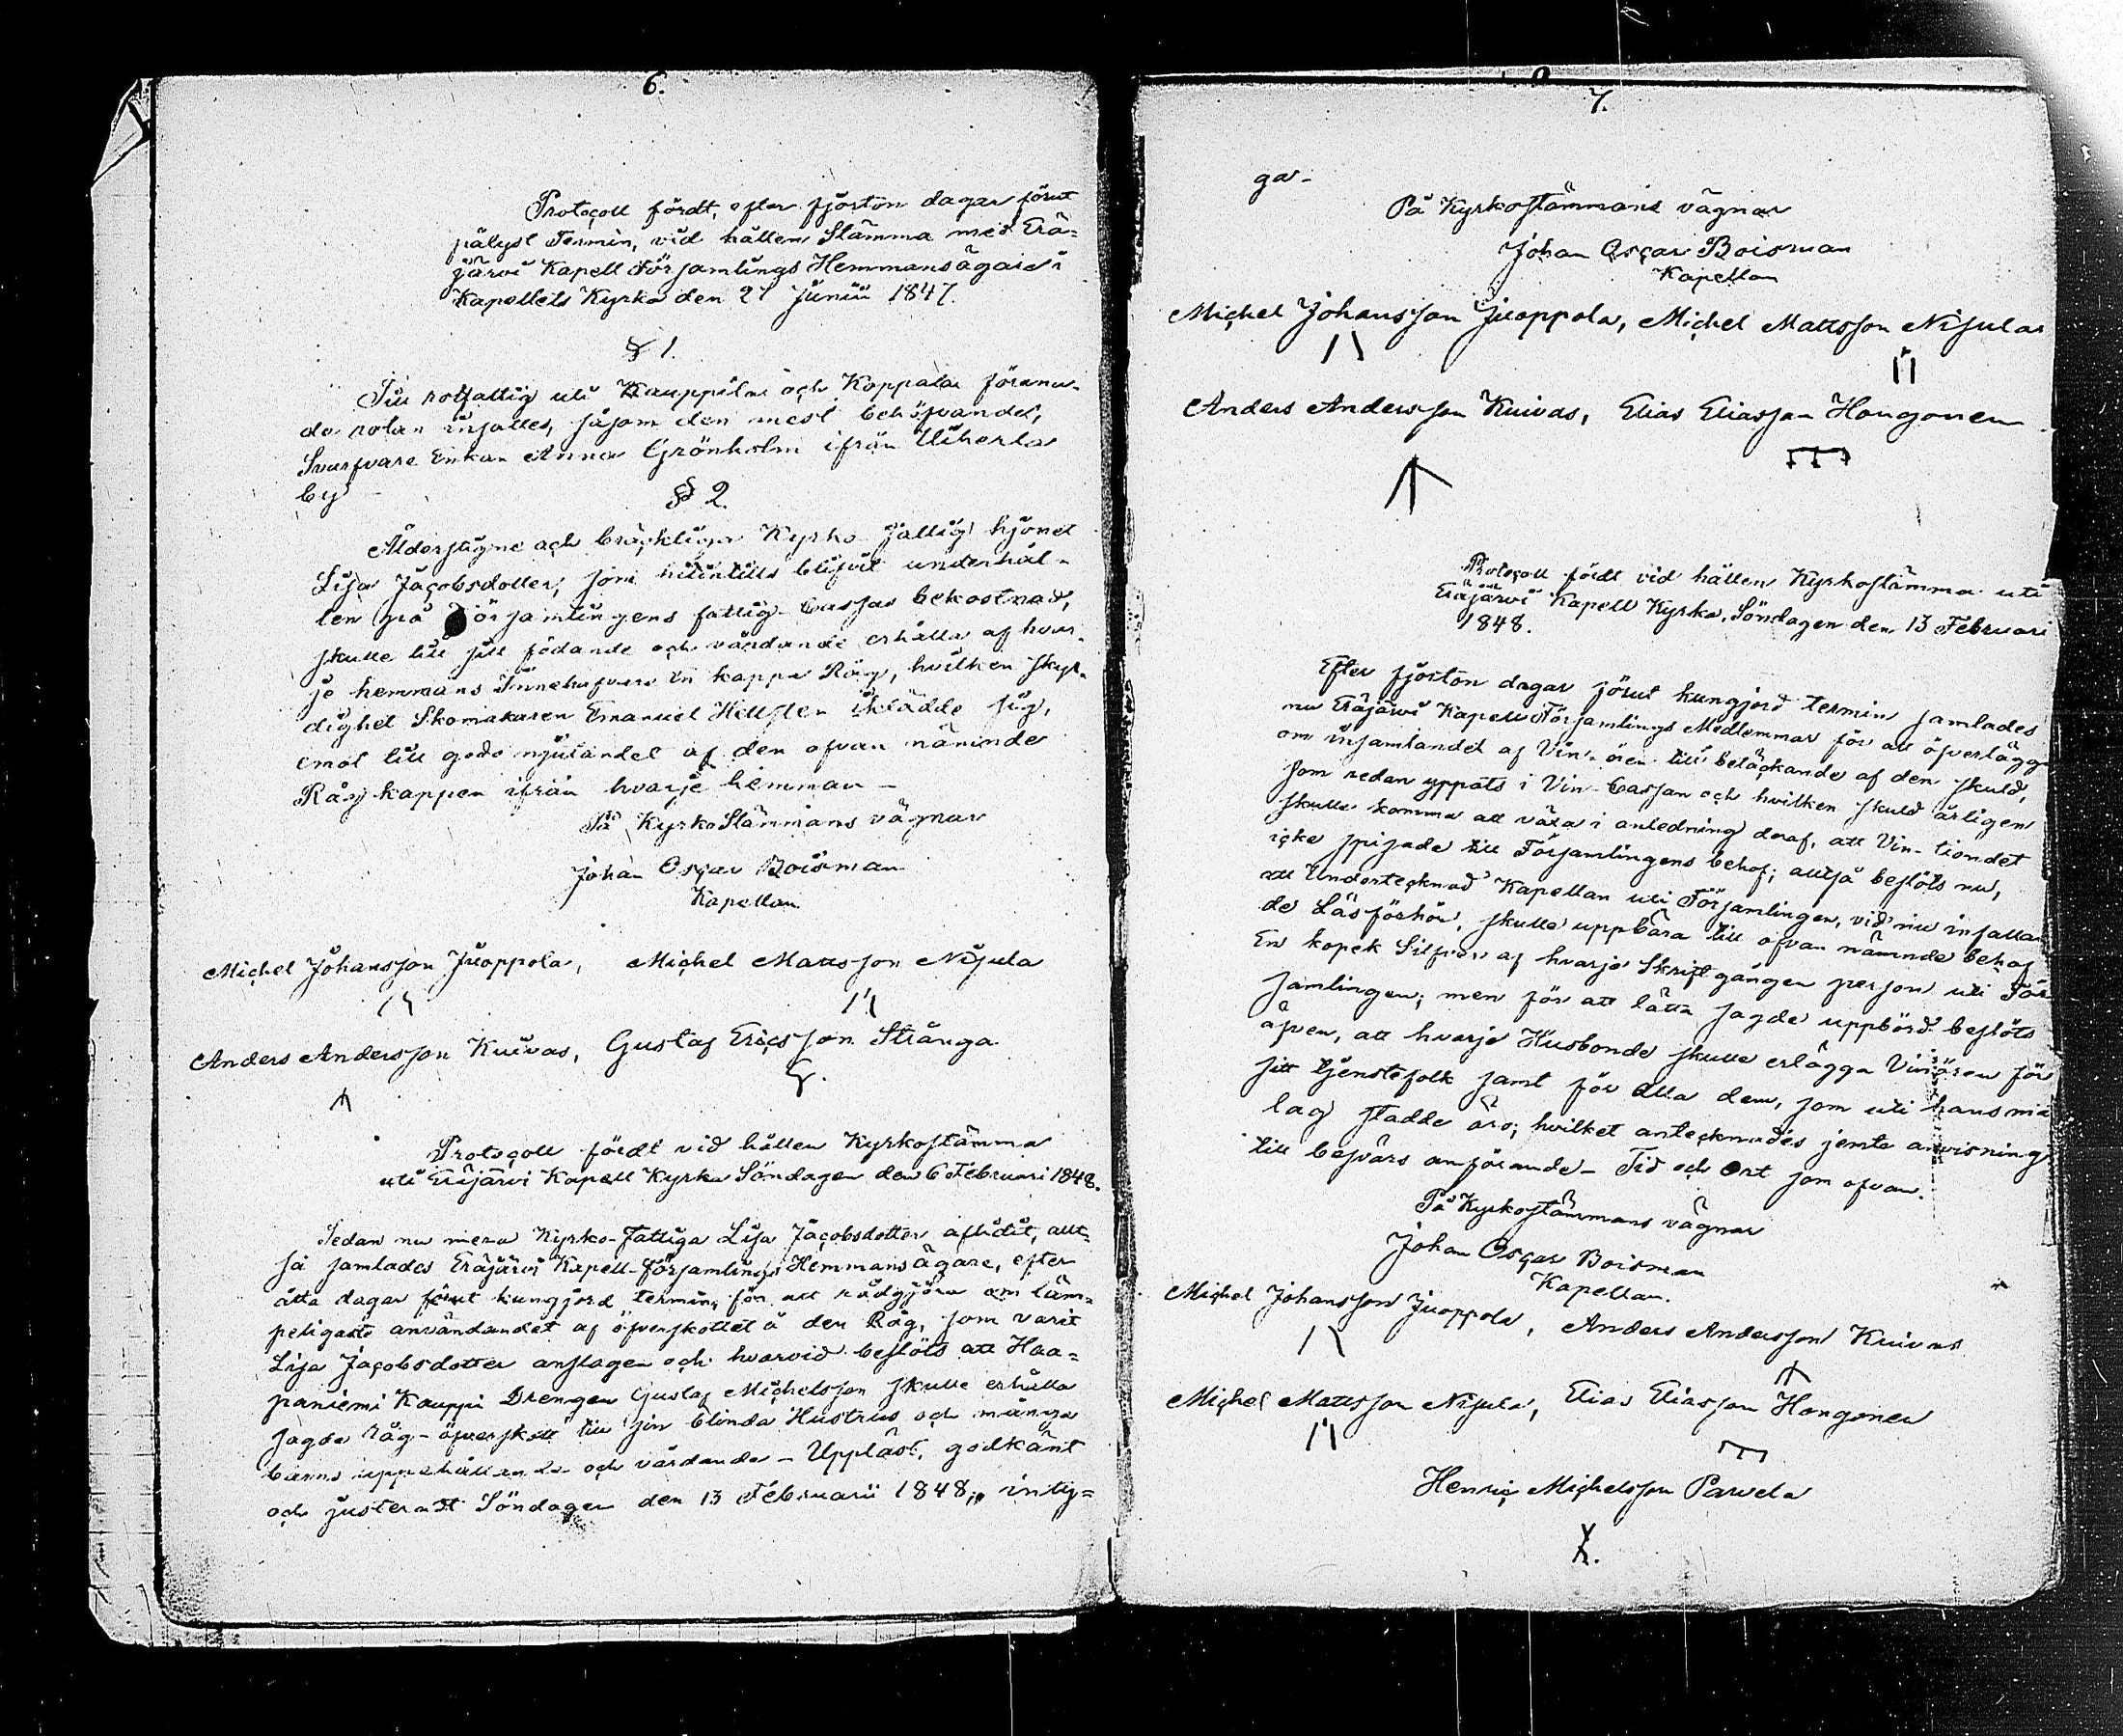 6.
Protocoll fördt, efter fjorton dagar förut
pålyst Termin, vid hållen Stämma med Erä-
järvi Kapell Församlings Hemmansägare i
Kapellets Kyrka den 27 Junii 1847.
§ 1.
Till rotfattig uti Kauppila och Koppala förena-
de rotar insattes, såsom den mest behöfvande,
Svarfvare Enkan Anna Grönholm ifrån Uiherla
by
§ 2.
Ålderstigne och bräckliga Kyrko fattig hjonet
Lisa Jacobsdotter, som hitintills blifvit underhål-
len på Församlingens fattig-Cassas bekostnad,
skulle till sitt födande och vårdande erhålla af hvar-
je hemmans Innehafvare en kappa Råg, hvilken skyl-
dighet Skomakaren Emanuel Hellsten iklädde sig,
emot till godo njutandet af den ofvan nämnde
Råg kappen ifrån hvarje hemman -
På KyrkoStämmans vägnar
Johan Oscar Boisman
Kapellan.
Michel Johansson Juoppola, Michel Mattsson Nisula
Anders Andersson Kuivas, Gustaf Ericsson Stränga
Protocoll fördt vid hållen Kyrkostämma
uti Eräjärvi Kapell Kyrka Söndagen den 6 Februari 1848.
Sedan nu mera Kyrko-Fattiga Lisa Jacobsdotter aflidit, allt-
så samlades Eräjärvi Kapell-Församlings Hemmansägare, efter
åtta dagar förut kungjord termin, för att rådgöra om läm-
peligaste användandet af öfverskottet å den Råg, som varit
Lisa Jacobsdotter anslagen och hvarvid beslöts att Haa-
paniemi Kauppi Drengen Gustaf Michelsson skulle erhålla
sagde Råg-öfverskott till sin blinda Hustrus och många
barns uppehållande och vårdande - Uppläst, godkänt
och justeradt Söndagen den 13 Februarii 1848, intyg-
7.
ga -
På Kyrkostämmans vägnar
Johan Oscar Boisman
Kapellan
Michel Johansson Juoppola, Michel Mattsson Nisula
Anders Andersson Kuivas, Elias Eliasson Hongonen
Protocoll fördt vid hållen Kyrkostämma uti
Eräjärvi Kapell Kyrka, Söndagen den 13 Februari
1848.
Efter fjorton dagar förut kungjord termin samlades
nu Eräjärvi Kapell Församlings Medlemmar för att öfverlägga
om insamlandet af Vin-ören till betäckande af den skuld,
som redan yppats i Vin-Cassan och hvilken skuld årligen
skulle komma att växa i anledning deraf, att Vin-tiondet
icke spisade till Församlingens behof; alltså beslöts nu,
att Undertecknad Kapellan uti Församlingen, vid nu infallan-
de Läsförhör, skulle uppbära till ofvan nämnde behof
En kopek Silfver af hvarje Skriftgången person uti För-
samlingen; men för att lätta sagde uppbörd beslöts
äfven, att hvarje Husbonde skulle erlägga Vinören för
sitt tjenstefolk samt för alla dem, som uti hans mat-
lag stadde äro; hvilket antecknades jemte anvisning
till besvärs anförande - Tid och Ort som ofvan.
På Kyrkostämmans vägnar
Johan Oscar Boisman
Kapellan.
Michel Johansson Juoppola, Anders Andersson Kuivas
Michel Mattsson Nisula, Elias Eliasson Hongonen
Henric Michelsson Parvela